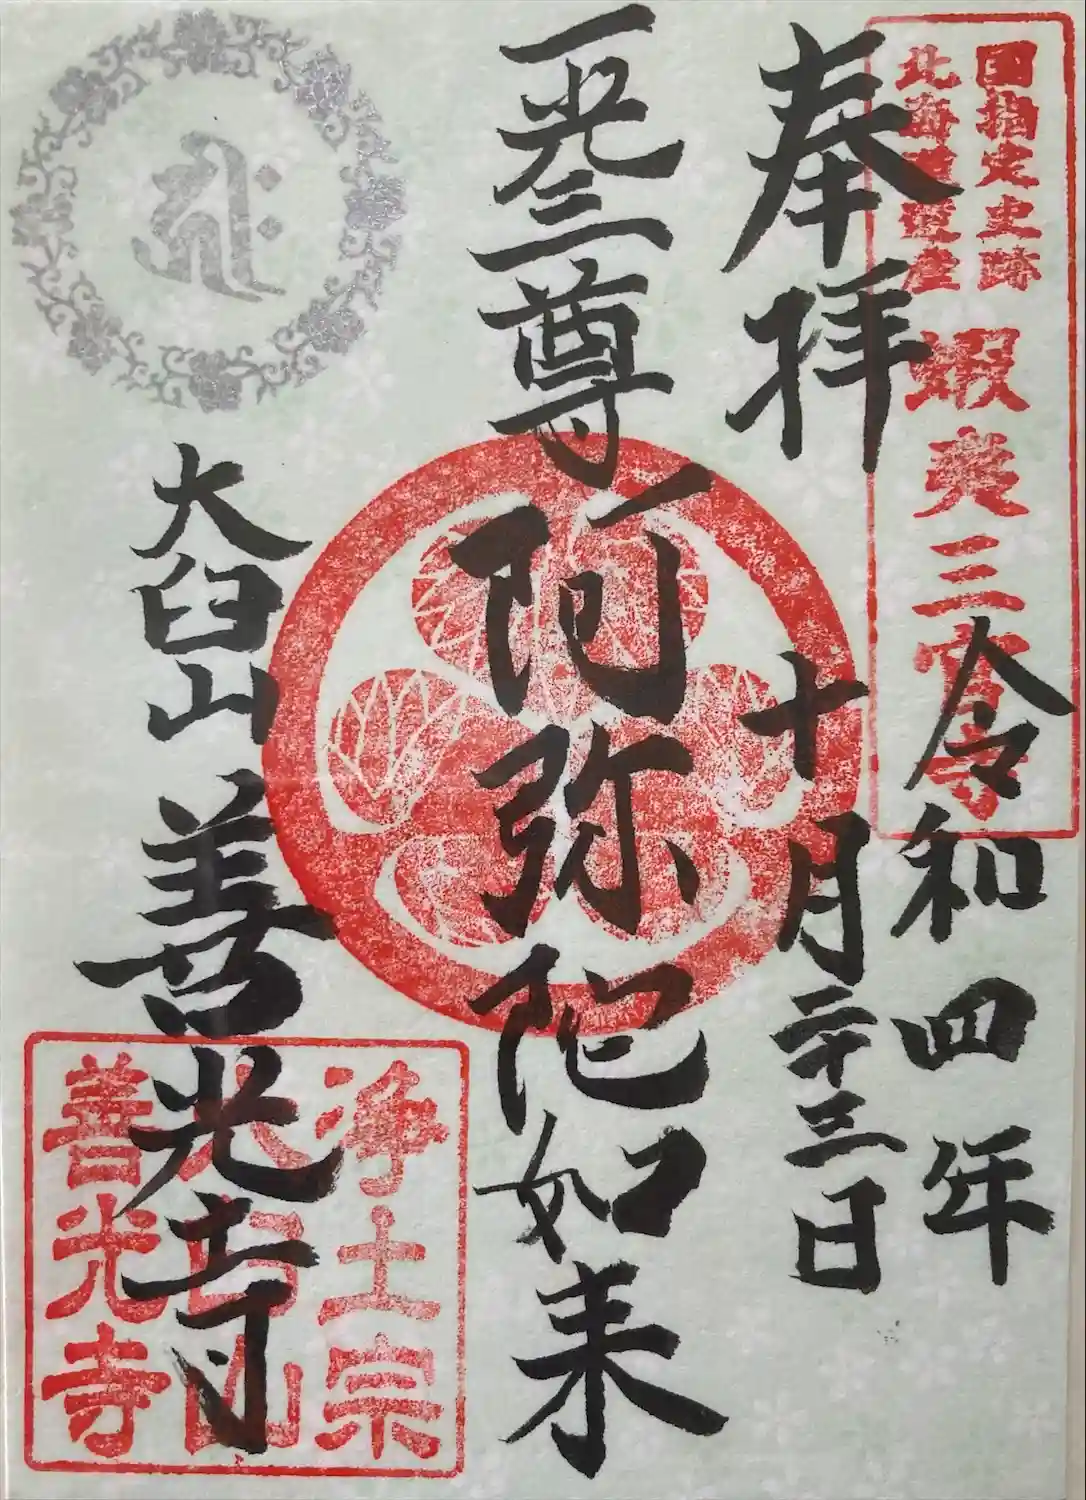 國指定史跡
北海道遺産
蝦夷三官寺
奉拝
令和四年
十月二十三日
一光三尊
阿弥陀如来
大臼山
善光寺
浄土宗
大臼山
善光寺